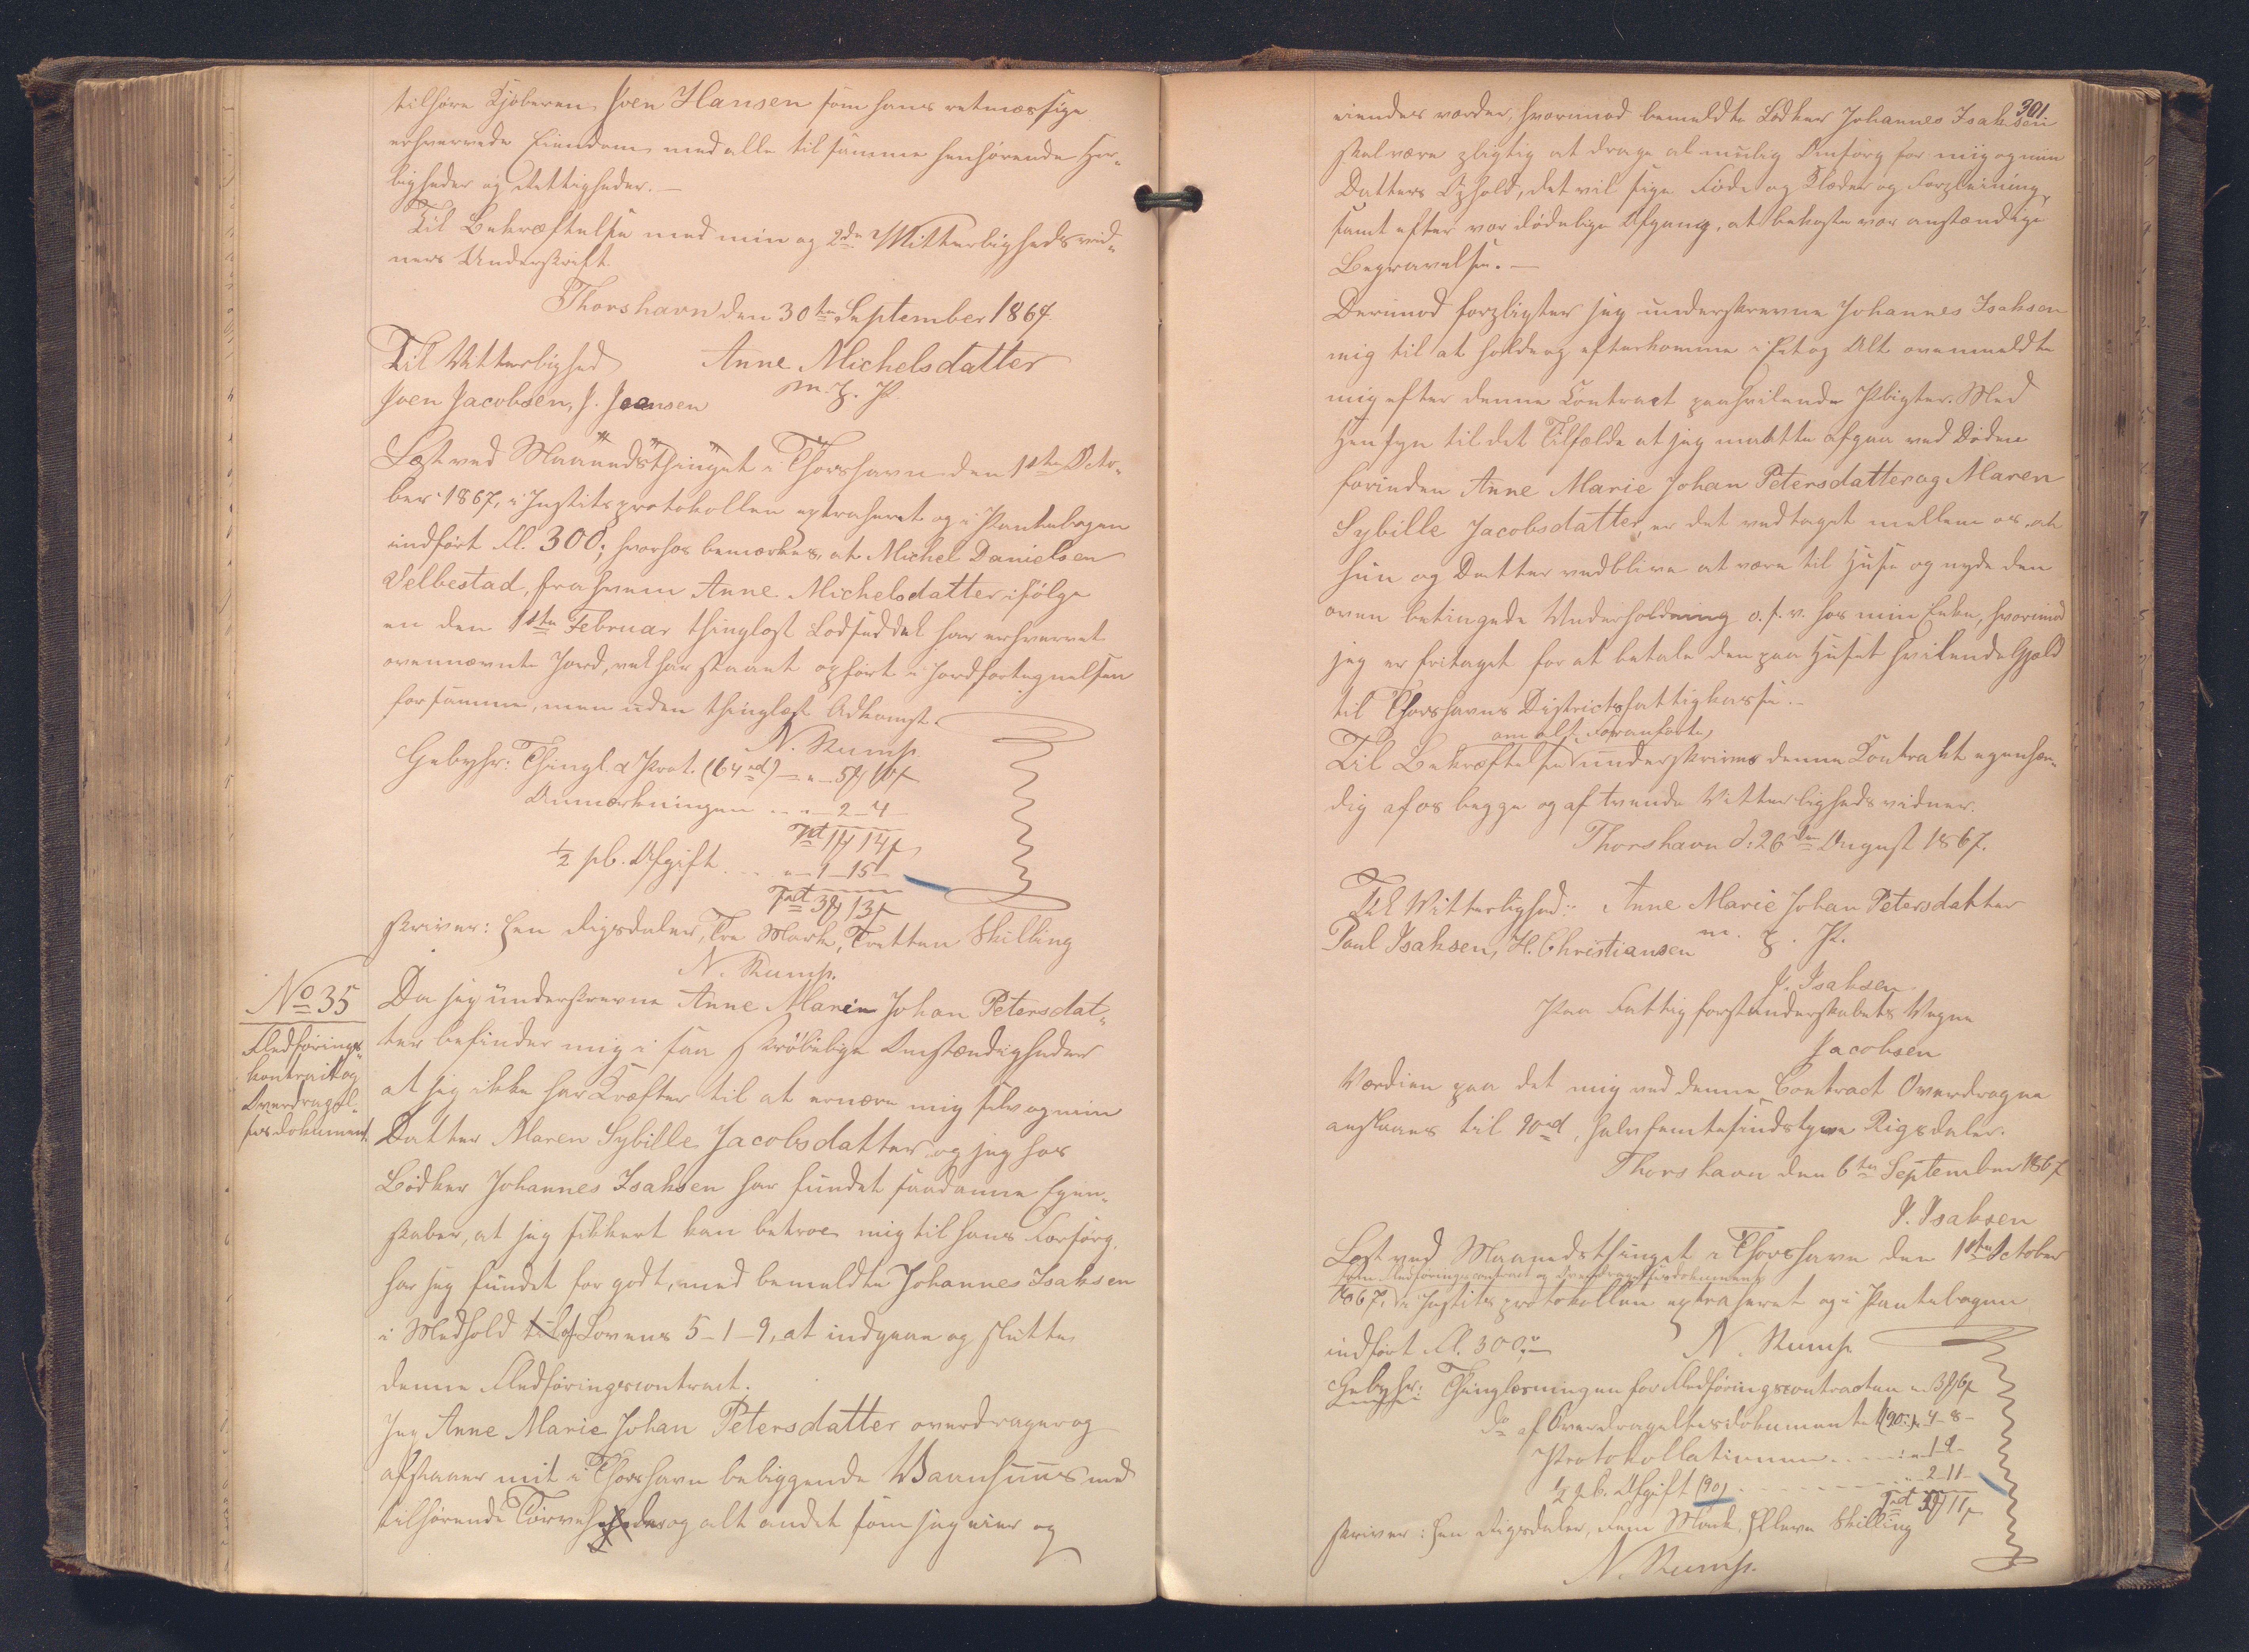 tilhøre Kjøberen Joen Hansen som hans retmæssige
erhvervede Eiendom med alle til samme henhørende Her-
ligheder og Rettigheder. —
Til Bekræftelse med min og 2de Vitterligheds vid-
ners Underskrift.
Thorshavn den 30te September 1867
Til Vitterlighed Anne Michelsdatter
Joen Jacobsen, J. Joensen m. f. P.
Læst ved Maanedsthinget i Thorshavn den 1ste Octo-
ber 1867, i Justitsprotokollen extraheret og i Pantebogen
indført Fl. 300; hvorhos bemærkes, at Michel Danielsen
Velbestad, fra hvem Anne Michelsdatter ifølge
en den 1ste Februar thinglæst Lodseddel har erhvervet
ovennævnte Jord, vel har staaet opført i Jordfortegnelsen
for samme, men uden thinglæst Adkomst.
N. Rump
Gebyhr: Thingl. & Prot. (64 rd) — " — 5 ## 10 ß
Anmærkningen . . " — 2 — 4 —
1 rd 1 ## 14 ß
½ pC. Afgift . . . " — 1 — 15 —
1 rd 3 ## 13 ß
skriver: Een Rigsdaler, Tre Mark, Tretten Skilling
N. Rump.
No 35
Fledførings-
kontrakt og
Overdragel-
sesdokument.
Da jeg underskrevne Anne Marie Johan Petersdat-
ter befinder mig i saa skrøbelige Omstændigheder
at jeg ikke har Kræfter til at ernære mig selv og min
Datter Maren Sybille Jacobsdatter og jeg hos
Bødker Johannes Isaksen har fundet saadanne Egen-
skaber, at jeg sikkert kan betroe mig til hans Forsorg,
har jeg fundet for godt, med bemeldte Johannes Isaksen
i Medhold af Lovens 5-1-9, at indgaae og slutte
denne Fledføringscontract.
Jeg Anne Marie Johan Petersdatter overdrager og
afstaaer mit i Thorshavn beliggende Vaanhuus med
tilhørende og alt andet som jeg eier og
301.
eiendes vorder, hvorimod bemeldte Bødker Johannes Isaksen
skal være pligtig at drage al mulig Omsorg for mig og min
Datters Ophold, det vil sige Føde og Klæder og Forpleining,
samt efter vor dødelige Afgang, at bekoste vor anstændige
Begravelse. —
Derimod forpligter jeg underskrevne Johannes Isaksen
mig til at holde og efterkomme i Eet og Alt ovenmeldte
mig efter denne Contract paahvilende Pligter. Med
Hensyn til det Tilfælde at jeg maatte afgaa ved Døden
forinden Anne Marie Johan Petersdatter og Maren
Sybille Jacobsdatter, er det vedtaget mellem os, at
hun og Datter vedblive at være til Huse og nyde den
oven betingede Underholdning o. s. v. hos min Enke, hvorimod
jeg er fritaget for at betale den paa Huset hvilende Gjæld
til Thorshavns Districtsfattigkasse. —
om alt Foranførte,
Til Bekræftelse underskrives denne Kontrakt egenhæn-
dig af os begge og af tvende Vitterlighedsvidner.
Thorshavn d: 26de August 1867.
Til Vitterlighed: Anne Marie Johan Petersdatter
Paul Isaksen, H. Christiansen m. f. P.
J. Isaksen
Paa Fattigforstanderskabets Vegne
Jacobsen
Værdien paa det mig ved denne Contract Overdragne
anslaaes til 90 rd, halvfemtesindstyve Rigsdaler.
Thorshavn den 6te September 1867
J. Isaksen
Læst ved Maanedsthinget i Thorshavn den 1ste October
som Fledføringscontract og Overdragelsesdokument
1867, i Justitsprotokollen extraheret og i Pantebogen
indført Fl. 300. —
N. Rump
Gebyhr: Thinglæsningen for Fledføringscontracten " 3 ## 6 ß
do af Overdragelsesdokumentet (90) " 4 — 8 —
Protokollationen . . . . . " — 1 9 —
½ pC. Afgift (90) . . . . . . " — 2 — 11 —
skriver: Een Rigsdaler, Fem Mark, Elleve Skilling
N. Rump.